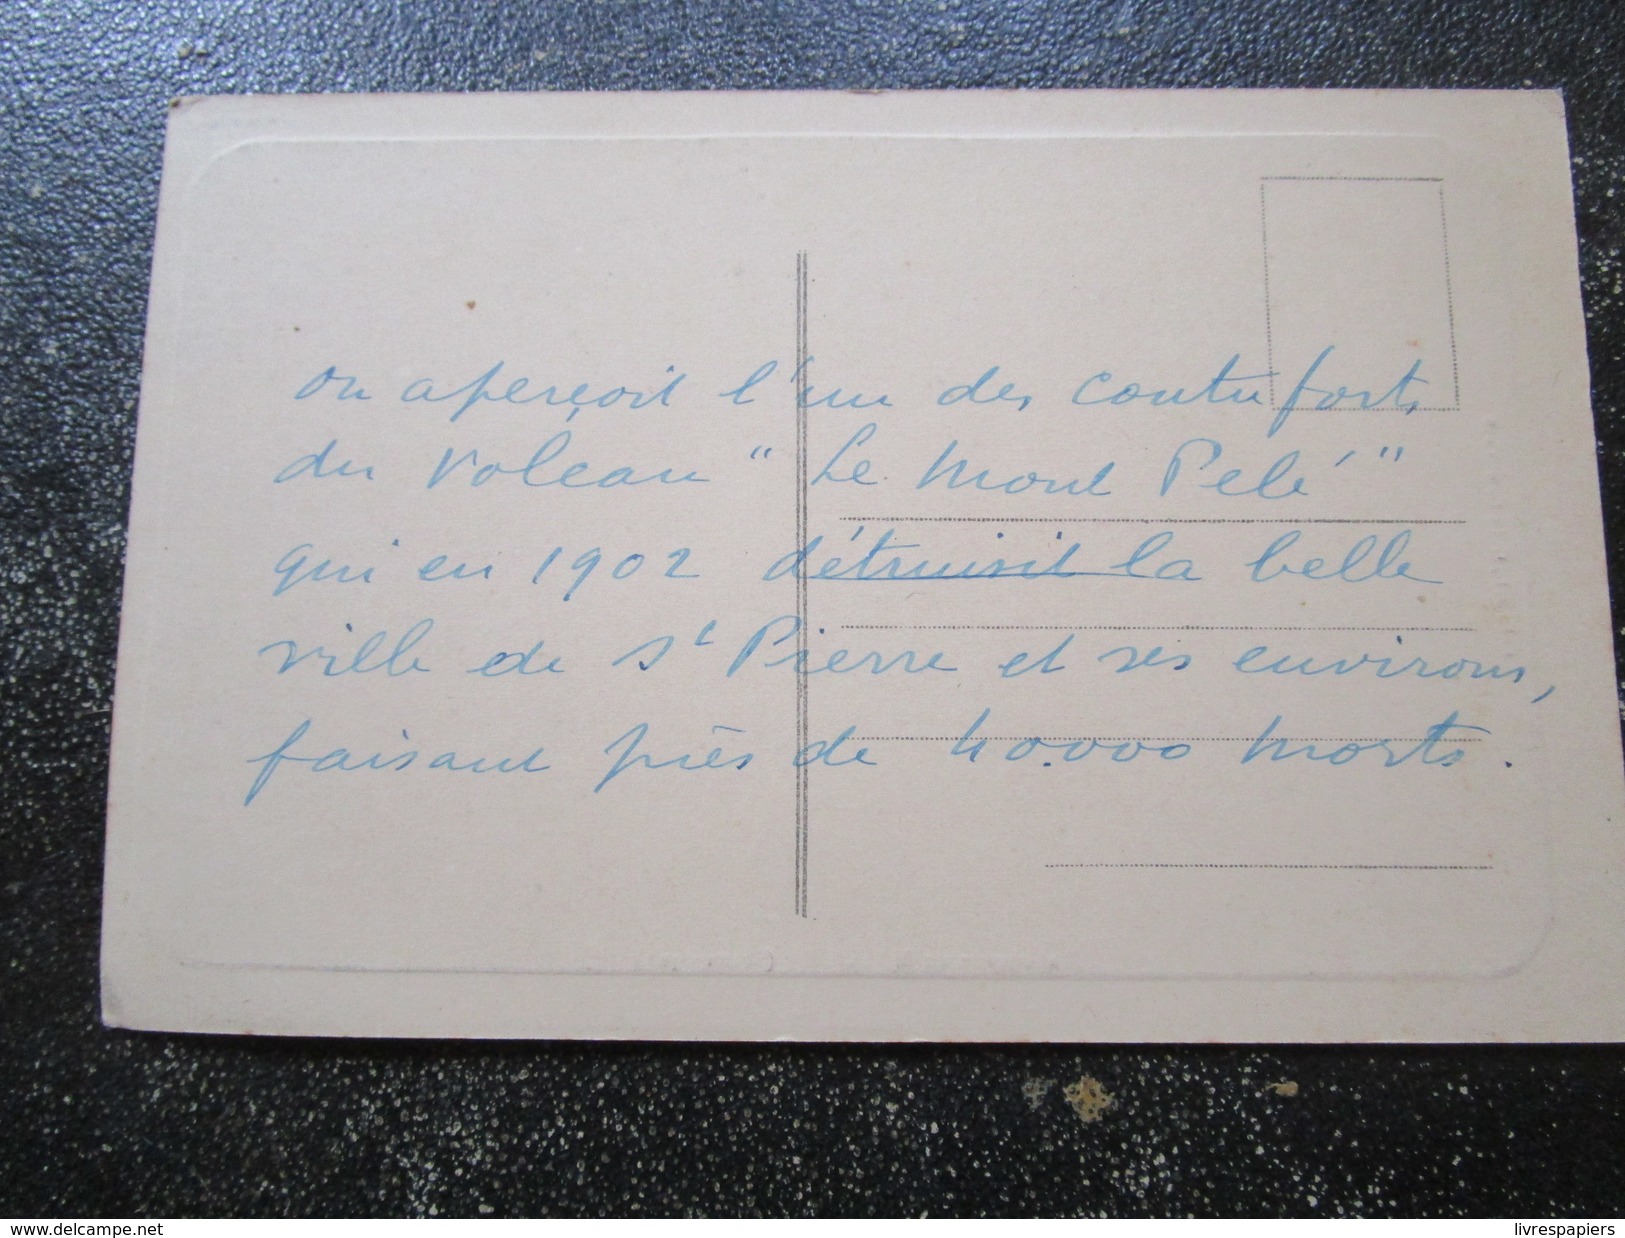 on aperçoit l'un des contreforts
du Volcan " Le Mont Pelé "
qui en 1902 détruisit la belle
ville de St Pierre et ses environs,
faisant près de 40.000 morts.
www.delcampe.net
livrespapiers